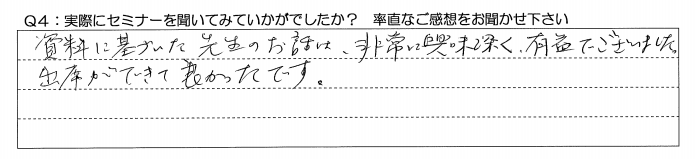 Q4：実際にセミナーを聞いてみていかがでしたか？　率直なご感想をお聞かせ下さい
資料に基づいた先生のお話は、非常に興味深く、有益でございました。
出席ができて良かったです。